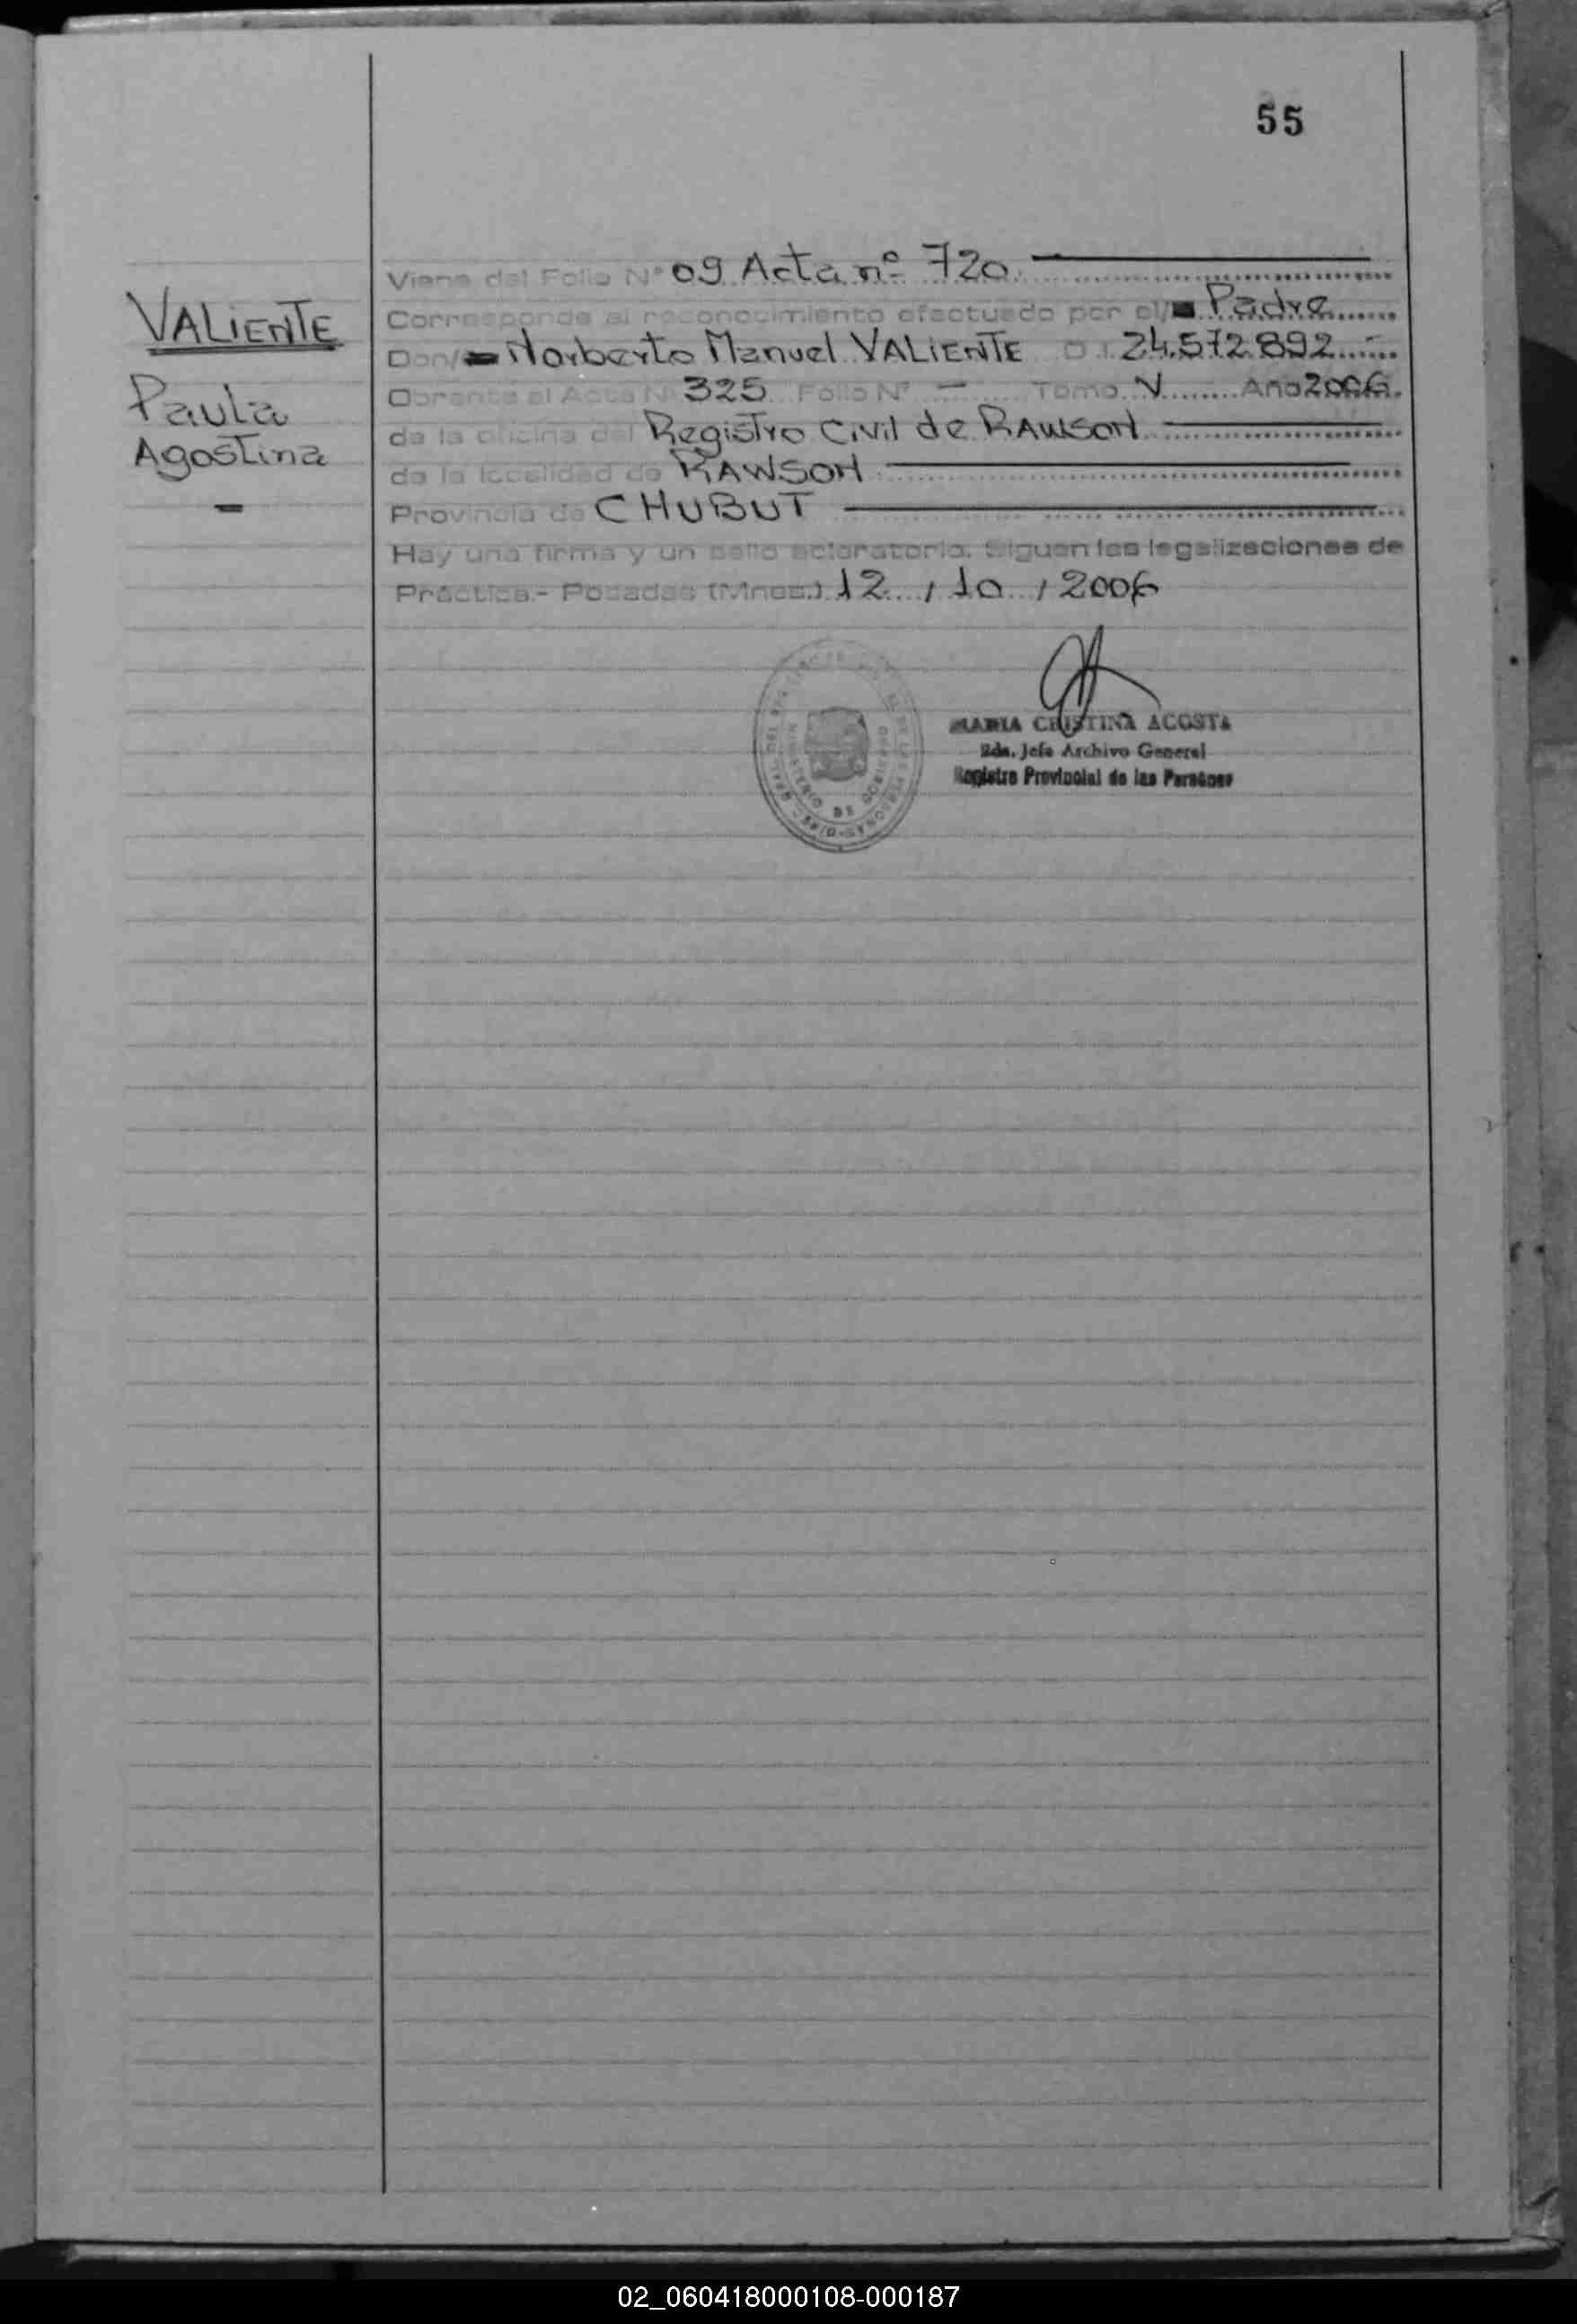 55
Viene del Folio Nº 09 Acta nº 720
VALIENTE
Corresponde al reconocimiento efectuado por el/ Padre
Don/ Norberto Manuel VALIENTE D.I. 24.572.892
Paula
Obrante al Acta Nº 325 Folio Nº - Tomo V Año 2006.
Agostina
de la oficina del Registro Civil de RAWSON
de la localidad de RAWSON
-
Provincia de CHUBUT
Hay una firma y un sello aclaratorio. Siguen las legalizaciones de
Práctica.- Posadas (Mnes.) 12 / 10 / 2006
MARIA CRISTINA ACOSTA
2da. Jefe Archivo General
Registro Provincial de las Personas
MINISTERIO DE GOBIERNO
02_060418000108-000187